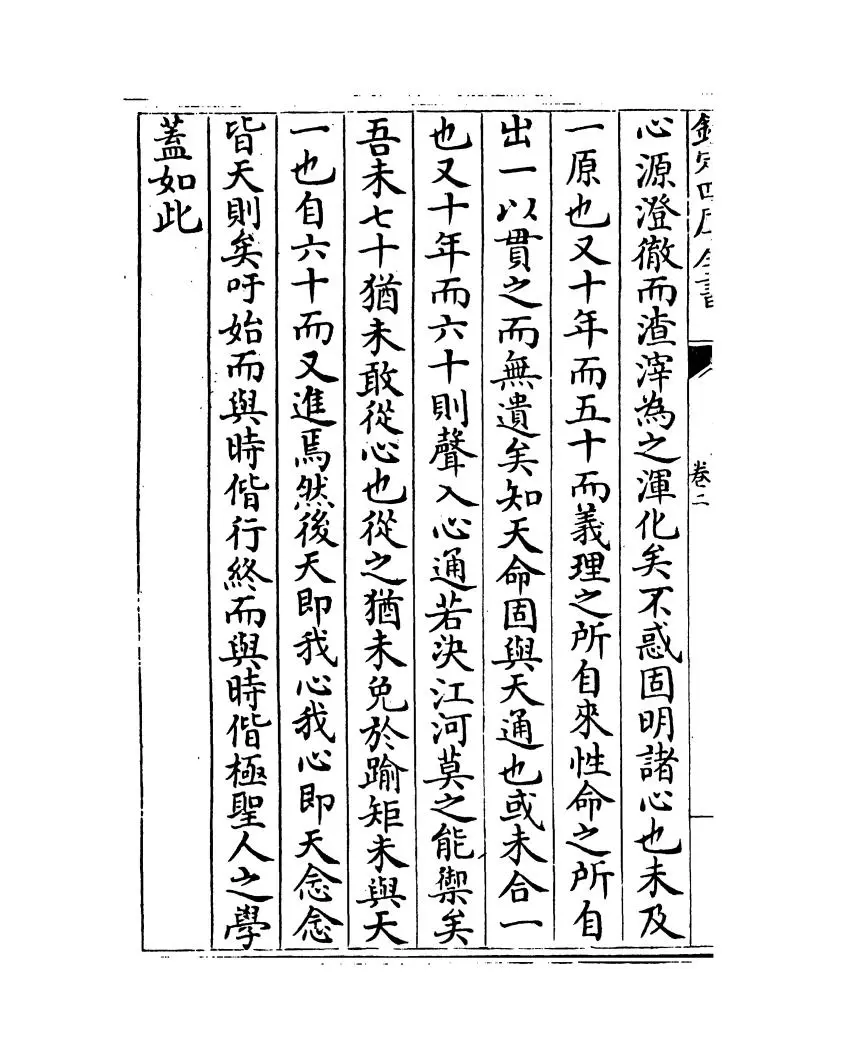 欽定四庫全書
卷二
心源澄徹而渣滓為之渾化矣不惑固明諸心也未及
一原也又十年而五十而義理之所自來性命之所自
出一以貫之而無遺矣知天命固與天通也或未合一
也又十年而六十則聲入心通若決江河莫之能禦矣
吾未七十猶未敢從心也從之猶未免於踰矩未與天
一也自六十而又進焉然後天即我心我心即天念念
皆天則矣吁始而與時偕行終而與時偕極聖人之學
蓋如此